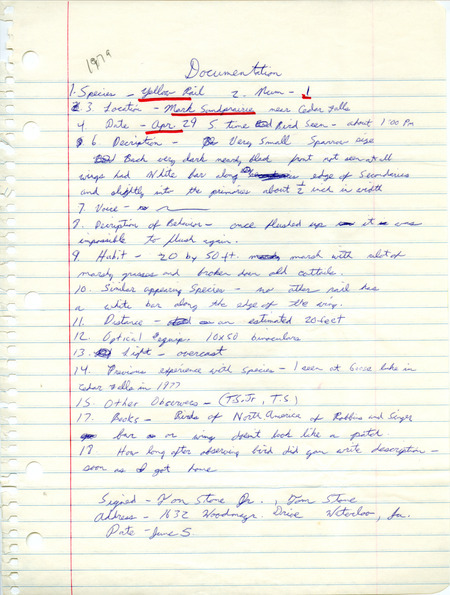 1979
Documentation
1. Species - Yellow Rail 2. Num - 1
3 Location - Mark Sandprairie near Cedar Falls
4. Date - Apr 29 5. time Bird Seen - about 1:00 Pm
6 Decription - Very Small Sparrow size
Back very dark nearly black front not seen at all
wings had White bar along edge of Secondaries
and slightly into the primaries about 1/2 inch in width
7. Voice - no
8. Decription of Behavior - once flushed up it was
impossible to flush again.
9. Habit - 20 by 50 ft. marsh with alot of
marshy grasses and broken down old cattails.
10. Similar appearing Species - no other rail has
a white bar along the edge of the wing.
11. Distance - an estimated 20 feet
12. Optical Equip - 10x50 binoculars
13. Light - overcast
14. Previous experience with Species - 1 seen at Goose Lake in
Cedar Falls in 1977
15. Other Observers - (T.S. Jr., T.S.)
17. Books - Birds of North America of Robbins and Singer
bar on wing doesn't look like a patch
18 How long after observing bird did you write description -
soon as I got home
Signed - Tom Stone Jr., Tom Stone
Address - 1632 Drive Waterloo, Ia.
Date - June 5